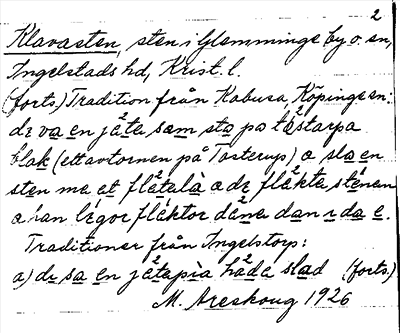 2
Klavasten, sten i Glemminge by o. sn,
Ingelstads hd, Krist. l.
(forts.) Tradition från Kabusa, Köpinge sn:
de va en jäta sam sto pa tåstarpa
blak (ett av tornen på Tosterup) a sla en
sten me et flätalà a de fläkta stenan
a han légor fläktor däna dan i da e.
Traditioner från Ingelstorp:
a) de sa en jätapìa hade slad (forts.)
M. Areskoug 1926